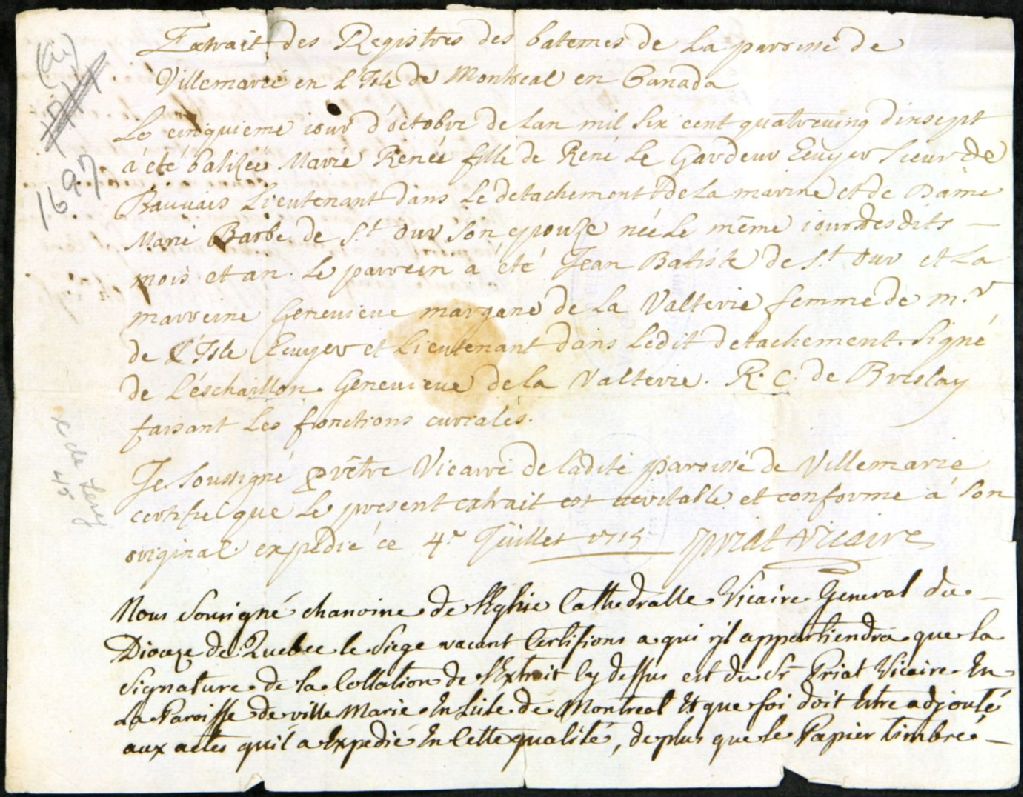 Extrait des Registres des batemes de La paroisse de
Villemarie en L'Isle de Montreal en Canada
Le cinquieme iour d'octobre de lan mil six cent quatreving dixsept
à été batisée Marie Renée fille de René Le Gardeur Ecuyer Sieur de
Bauvais Lieutenant dans Le detachement de La marine et de Dame
Marie Barbe de St. Our Son epouze née Le même iour desdits —
mois et an. Le parrein a été Jean Batiste de St. Our et La
marreine Genevieve margane de La Valterie femme de mr.
de L'Isle Ecuyer et Lieutenant dans Ledit detachement. Signé
de L'eschaillon. Genevieve de la Valterie. R. C. de Breslay
faisant Les fonctions curiales.
Je Soussigné prêtre Vicaire de Ladite paroisse de Villemarie
certifie que Le present extrait est veritable et conforme à Son
original expedié ce 4e. Juillet 1715 priat Vicaire
Nous Sousigné chanoine de l'Eglise Cathedralle Vicaire General du —
Dioceze de Quebec le Siege vacant Certifions a qui il appartiendra que la
Signature de la Collation de l'Extrait cy dessus est du Sr. Priat Vicaire En
La Paroisse de ville Marie En l'isle de Montreal Et que foi doit Estre adjouté
aux actes qu'il a Expedié En Cette qualité, de plus que le Papier timbré —
1697
C de Lery
45